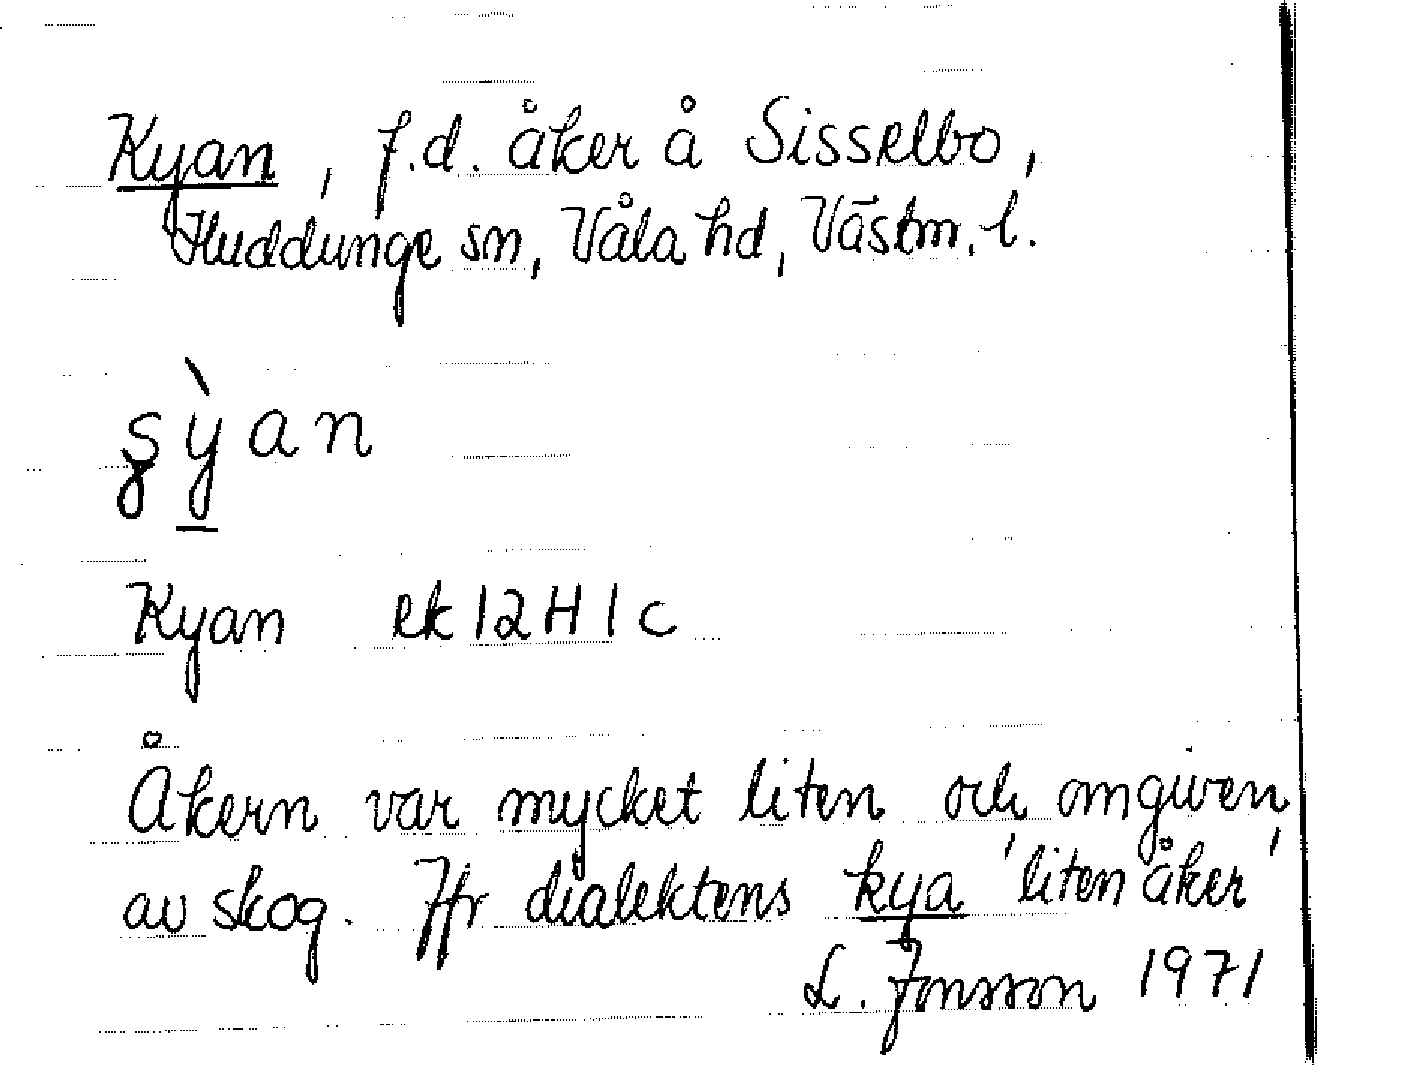 Kyan, f.d. åker å Sisselbo,
Huddunge sn, Våla hd, Västm. l.
ȿỳ̠an
Kyan ek 12 H 1 c
Åkern var mycket liten och omgiven
av skog. Jfr dialektens kya 'liten åker'
L. Jonsson 1971